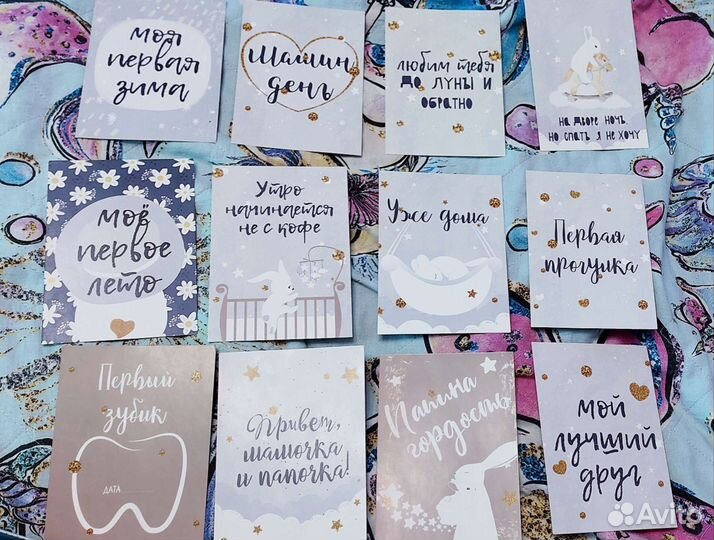 моя
первая
зима
Мамин
день
любим тебя
до луны и
обратно
на дворе ночь,
но спать я не хочу
моё
первое
лето
Утро
начинается
не с кофе
Уже дома
Первая
прогулка
Первый
зубик
ДАТА
Привет,
мамочка
и папочка!
Папина
гордость
мой
лучший
друг
Avito